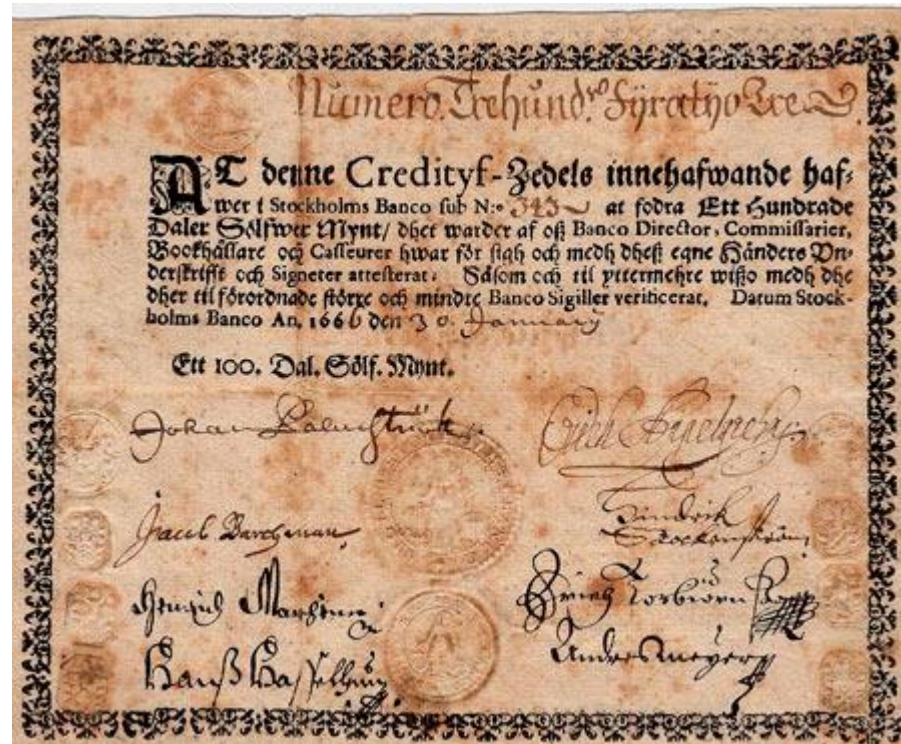 Numero. Trehund.ro Fyratyo Tre.
AT denne Credityf-Zedels innehafwande haf-
wer i Stockholms Banco sub N:o 343 at fodra Ett Hundrade
Daler Sölfwer Mynt/ dhet warder af oß Banco Director, Commissarier,
Bookhållare och Casseurer hwar för sigh och medh dheß egne Händers Vn-
derskrifft och Signeter attesterat. Såsom och til yttermehre wißo medh dhe
dher til förordnade större och mindre Banco Sigiller verificerat. Datum Stock-
holms Banco An. 1666 den 30. January
Ett 100. Dal. Sölf. Mynt.
Johan Palmstruch
Jacob Barchman
Hindrik Stockenström
Erich Torbiörn
Anders Meyer